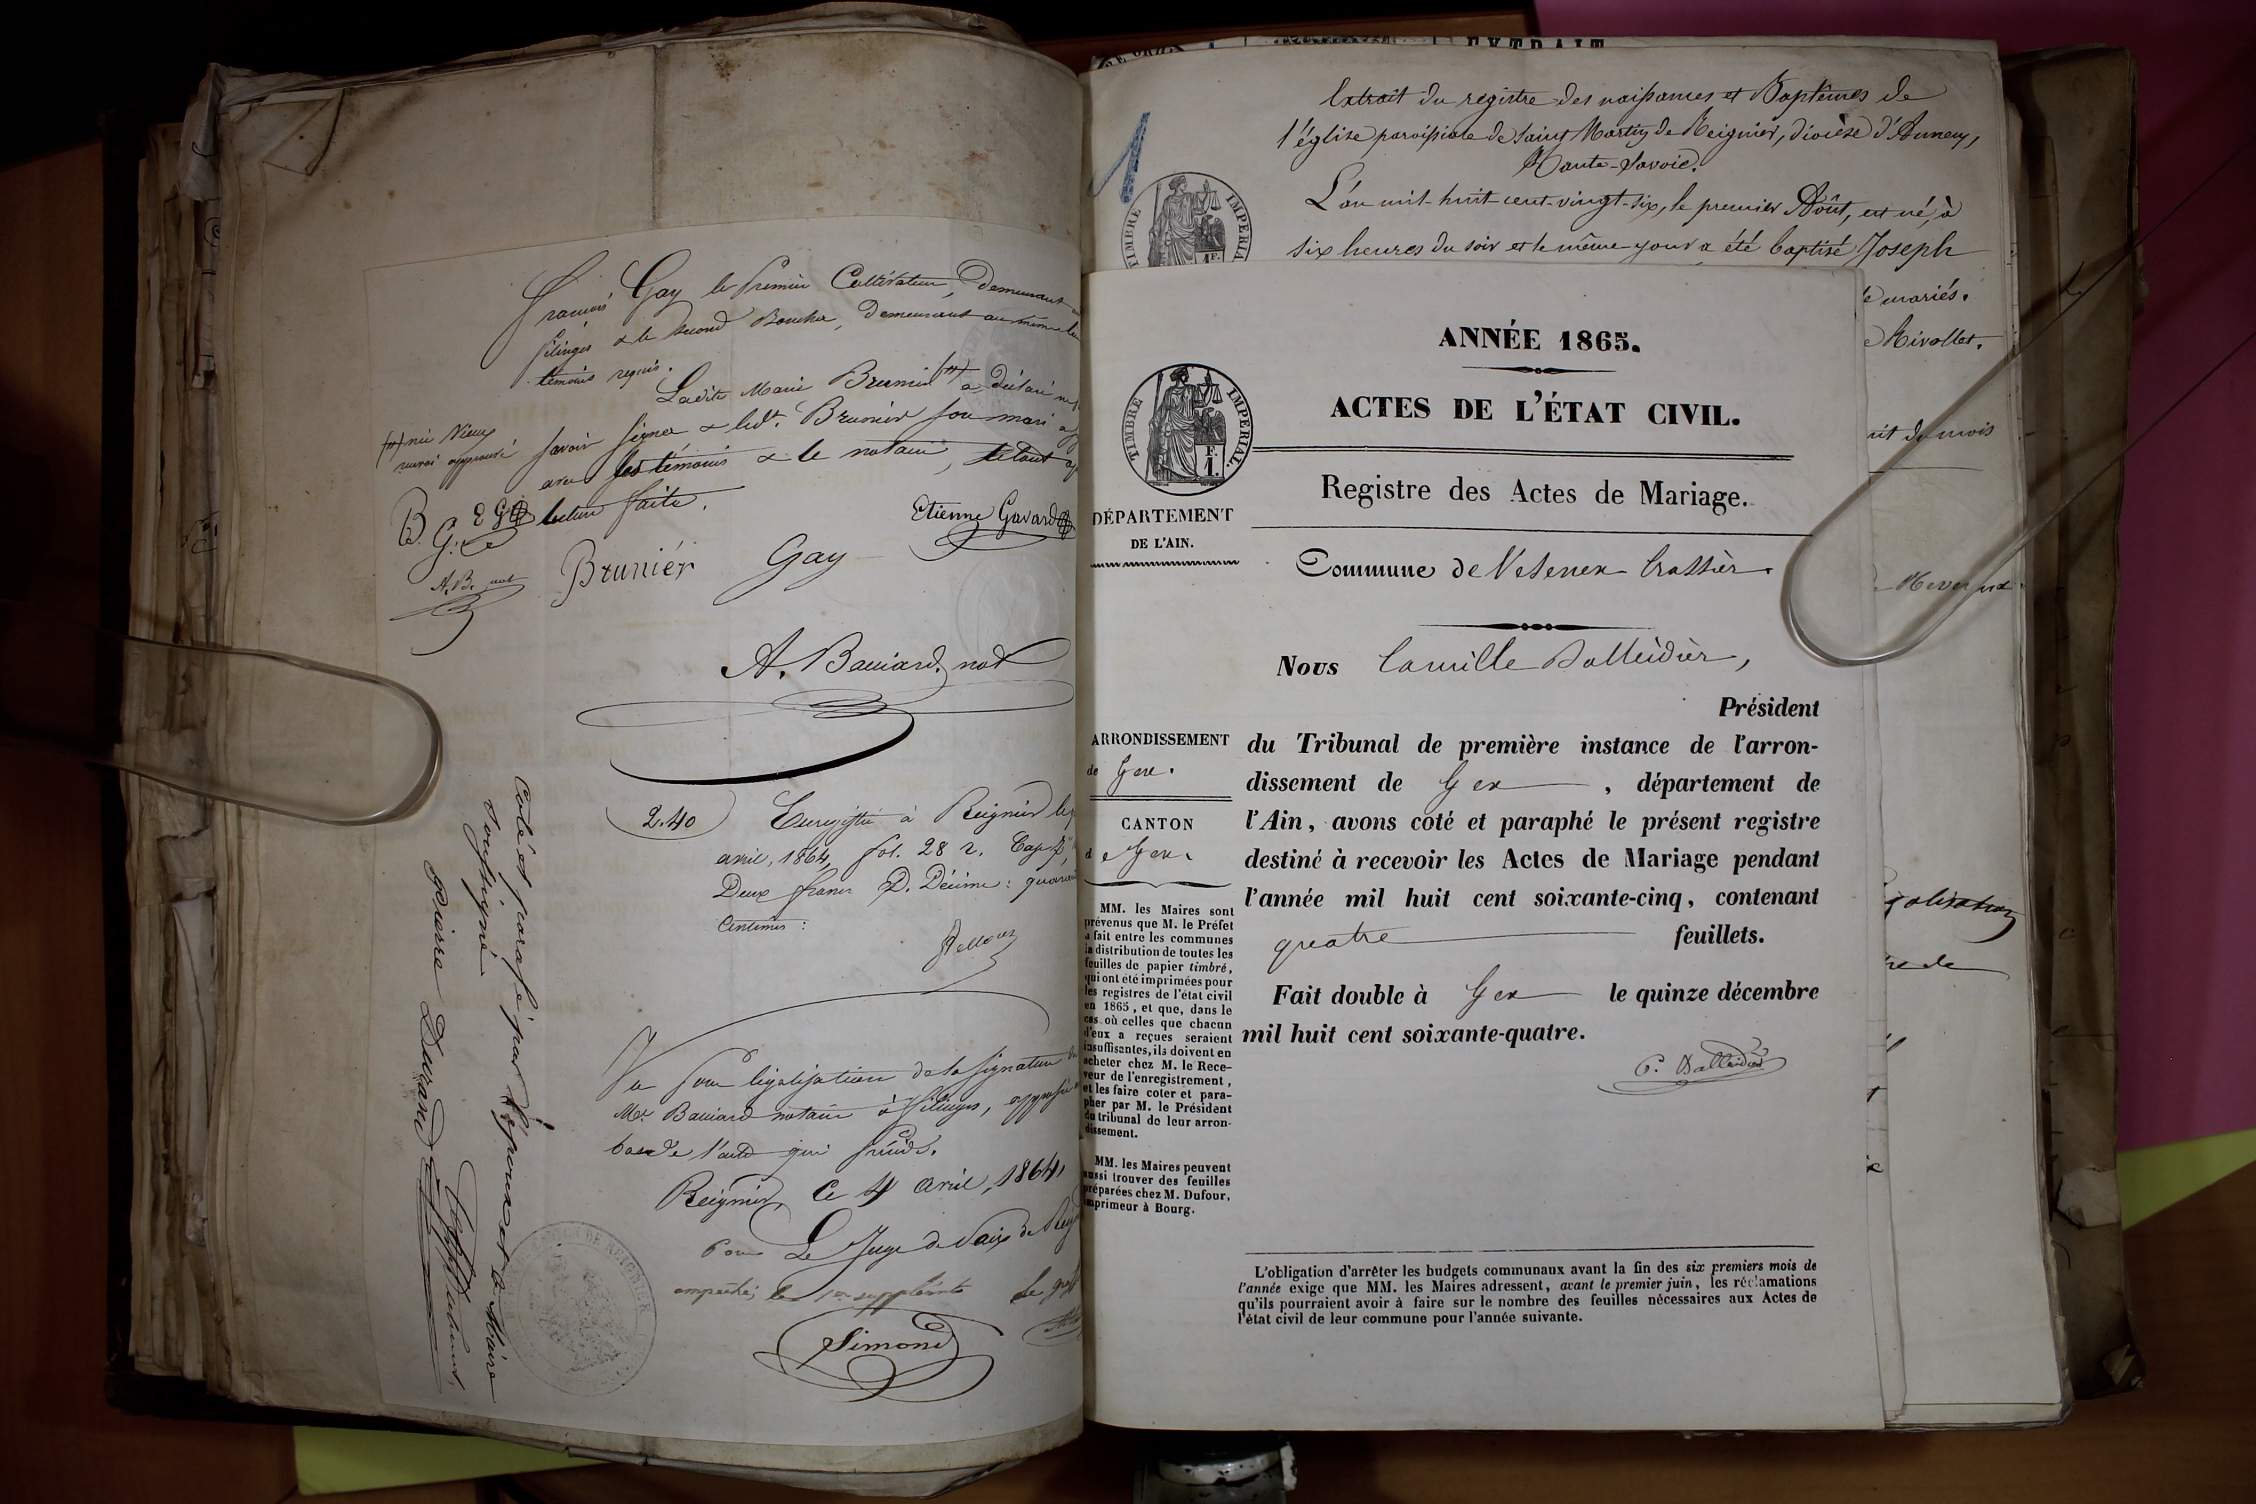 François Gay le premier Cultivateur, demeurant
filinges & le second Boucher, demeurant au même lieu
témoins requis.
Ladite Marie Brunier (n) a déclaré ne
(n) mis Nieux
savoir signer & led.t Brunier son mari a
avec les témoins & le notaire, le tout
lecture faite.
B. G. E G
A.B. not
Bruniér
Gay
Etienne Gavard
A. Bauiard, not
2.40
Enregistré à Reignier le
avril, 1864, fol. 28 r.
Deux francs D. Décime : quarante
Centimes :
Vu pour légalisation de la signature de
Mr. Bauiard notaire à filinges, apposée
bas de l'acte qui précède.
Reignier, Ce 4 avril, 1864,
Pour Le Juge de Paix de Reig
empêché, le 1er suppléant Le greff
Simond
Coté et parafé par l'épouse et le Maire
soussigné
Pierre Durand
CANTON DE REIGNIER
EXTRAIT
1
Extrait du registre des naissances et Baptêmes de
l'église paroissiale de Saint Martin de Reignier, diocèse d'Annecy,
Haute-Savoie.
L'an mil-huit-cent-vingt-six, le premier Août, est né, à
six heures du soir et le même jour a été baptisé Joseph
TIMBRE IMPERIAL
1 F.
mariés.
Rivollet.
du mois
ANNÉE 1865.
ACTES DE L'ÉTAT CIVIL.
TIMBRE IMPERIAL.
F.
1.
Registre des Actes de Mariage.
DÉPARTEMENT
DE L'AIN.
Commune de Vesenex Crassier.
Nous Camille Balleidier,
Président
ARRONDISSEMENT
de Gex.
CANTON
de Gex.
du Tribunal de première instance de l'arron-
dissement de Gex, département de
l'Ain, avons coté et paraphé le présent registre
destiné à recevoir les Actes de Mariage pendant
l'année mil huit cent soixante-cinq, contenant
quatre feuillets.
Fait double à Gex le quinze décembre
mil huit cent soixante-quatre.
C. Balleidier
MM. les Maires sont
prévenus que M. le Préfet
a fait entre les communes
la distribution de toutes les
feuilles de papier timbré,
qui ont été imprimées pour
les registres de l'état civil
en 1865, et que, dans le
cas où celles que chacun
d'eux a reçues seraient
insuffisantes, ils doivent en
acheter chez M. le Rece-
veur de l'enregistrement,
et les faire coter et para-
pher par M. le Président
du tribunal de leur arron-
dissement.
MM. les Maires peuvent
aussi trouver des feuilles
préparées chez M. Dufour,
imprimeur à Bourg.
L'obligation d'arrêter les budgets communaux avant la fin des six premiers mois de
l'année exige que MM. les Maires adressent, avant le premier juin, les réclamations
qu'ils pourraient avoir à faire sur le nombre des feuilles nécessaires aux Actes de
l'état civil de leur commune pour l'année suivante.